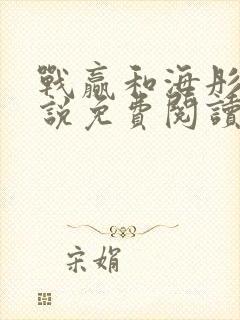 戰贏和海彤
說免費閱讀
宋娟